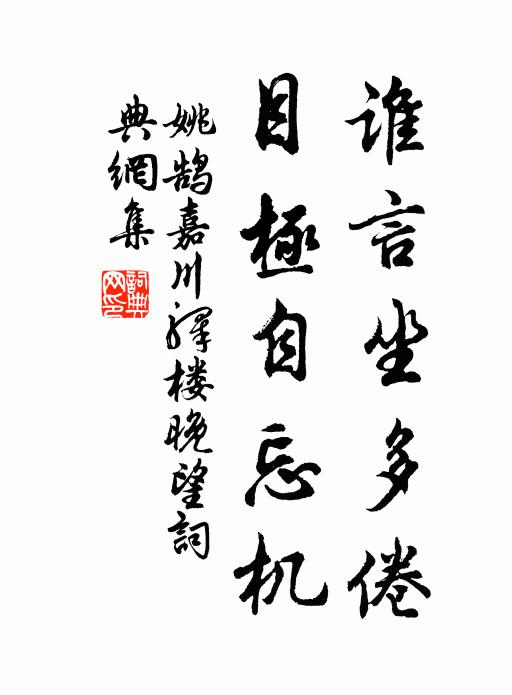 谁言坐多倦
目極自忘机
姚鹄嘉川驛楼晚望詞
典網集
詞典
网印